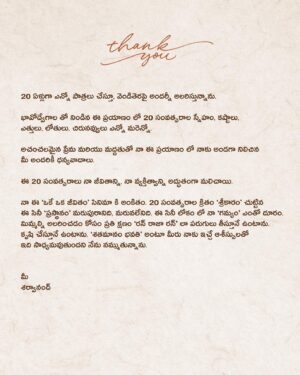 thank
you
20 ఏళ్లుగా ఎన్నో పాత్రలు చేస్తూ, వెండితెరపై అందర్నీ అలరిస్తున్నాను.
భావోద్వేగాల తో నిండిన ఈ ప్రయాణం లో 20 సంవత్సరాల స్నేహం, కష్టాలు,
ఎత్తులు, లోతులు, చిరునవ్వులు ఎన్నో మరెన్నో.
అచంచలమైన ప్రేమ మరియు మద్దతుతో నా ఈ ప్రయాణం లో నాకు అండగా నిలిచిన
మీ అందరికీ ధన్యవాదాలు.
ఈ 20 సంవత్సరాలు నా జీవితాన్ని, నా వ్యక్తిత్వాన్ని అద్భుతంగా మలిచాయి.
నా ఈ "ఒకే ఒక జీవితం" సినిమా కి అంకితం. 20 సంవత్సరాల క్రితం 'శ్రీకారం' చుట్టిన
ఈ సినీ 'ప్రస్థానం' మరుపురానిది, మరువలేనిది. ఈ సినీ లోకం లో నా 'గమ్యం' ఎంతో దూరం.
మిమ్మల్ని అలరించడం కోసం ప్రతి క్షణం 'రన్ రాజా రన్' లా పరుగులు తీస్తూనే ఉంటాను.
కృషి చేస్తూనే ఉంటాను. 'శతమానం భవతి' అంటూ మీరు నాకు ఇచ్చే ఆశీస్సులతో
ఇది సాధ్యమవుతుందని నేను నమ్ముతున్నాను.
మీ
శర్వానంద్